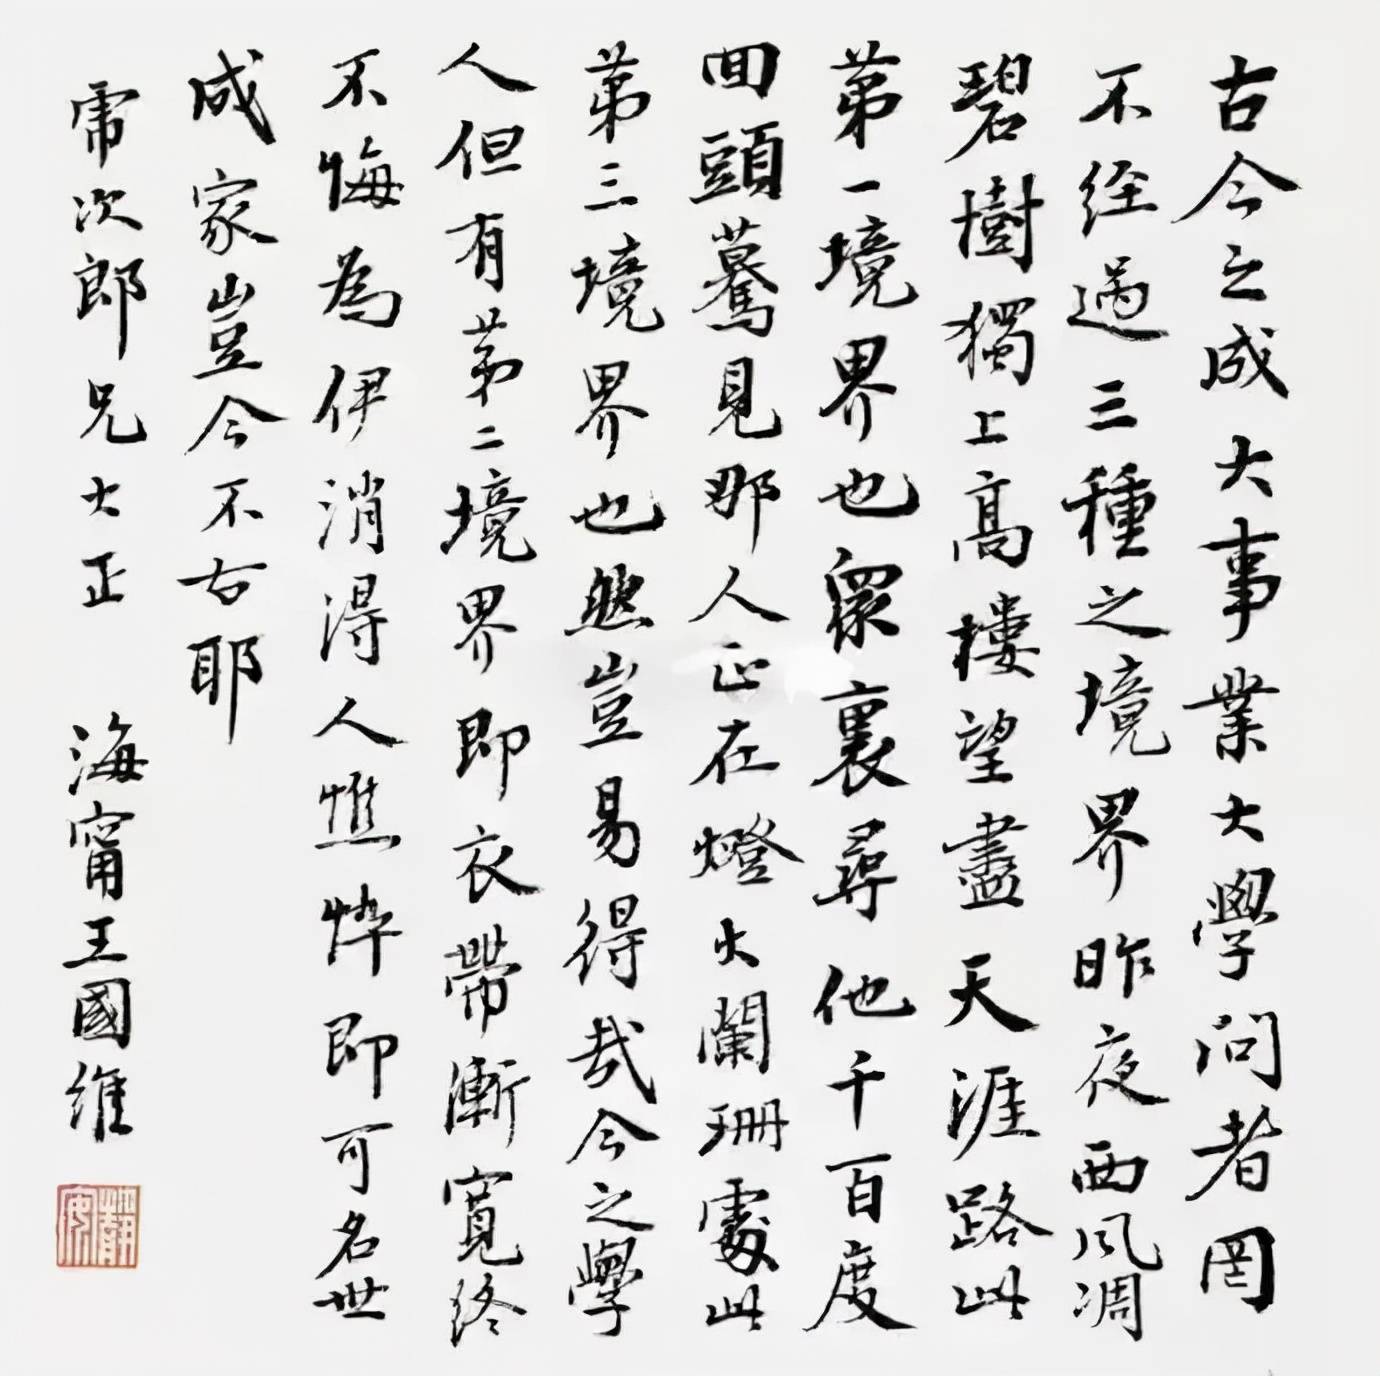 古今之成大事業大學問者罔
不經過三種之境界昨夜西風凋
碧樹獨上高樓望盡天涯路此
第一境界也眾裏尋他千百度
回頭驀見那人正在燈火闌珊處此
第三境界也然豈易得哉今之學
人但有第二境界即衣帶漸寬終
不悔為伊消得人憔悴即可名世
成家豈今不古耶
次郎兄大正 海甯王國維
靜安